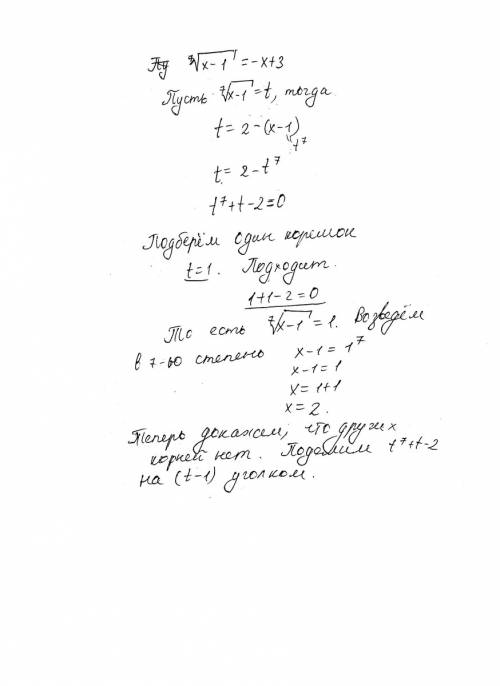 ⁷√x-1 = -x+3
Пусть ⁷√x-1 = t, тогда
t = 2-(x-1)
t⁷
t = 2-t⁷
t⁷+t-2=0
Подберём один корешок
t=1. Подходит.
1+1-2=0
То есть ⁷√x-1 = 1. Возведём
в 7-ую степень x-1=1⁷
x-1=1
x=1+1
x=2.
Теперь докажем, что других
корней нет. Поделим t⁷+t-2
на (t-1) уголком.